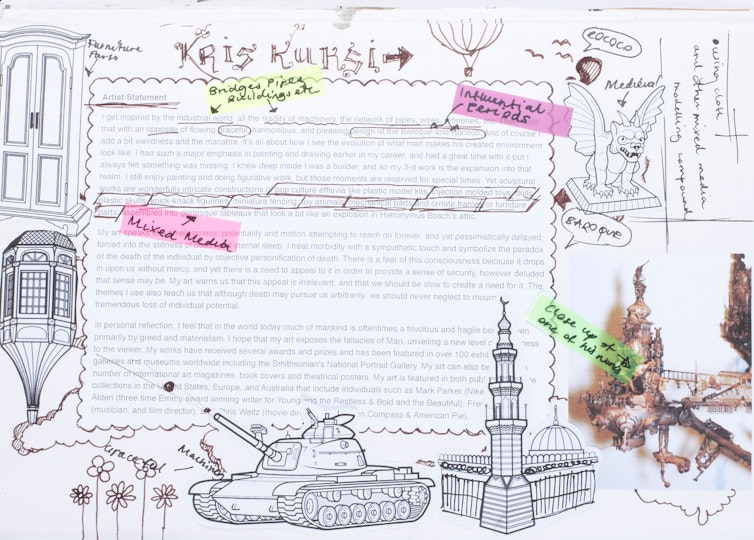 KRIS KUKSI
Furniture Parts
Bridges, Pipes,
Buildings etc
Influential
Periods
ROCOCO
Medieval
wing cloth
and other mixed media
modelling compound
Artist Statement
I get inspired by the industrial world, all the rigidity of machinery, the network of pipes, wires, refineries,
that with an opposite of flowing graceful, harmonious, and pleasing design of the Baroque and Rococo. And of course I
add a bit weirdness and the macabre. It's all about how I see the evolution of what man makes his created environment
look like. I had such a major emphasis in painting and drawing earlier in my career, and had a great time with it but I
always felt something was missing. I knew deep inside I was a builder, and so my 3-d work is the expansion into that
realm. I still enjoy painting and doing figurative work, but those moments are reserved for special times. Yet sculptural
works are wonderfully intricate constructions of pop culture effluvia like plastic model kits, injection molded toys
plastic skulls, knick-knack figurines, miniature fencing, toy animals, mechanical parts and ornate frames or furniture
parts assembled into grotesque tableaux that look a bit like an explosion in Hieronymus Bosch's attic.
Mixed Media
BAROQUE
My art potentiality and motion attempting to reach on forever, and yet pessimistically delayed;
forced into the stillness of eternal sleep. I treat morbidity with a sympathetic touch and symbolize the paradox
of the death of the individual by objective personification of death. There is a fear of this consciousness because it drops
in upon us without mercy, and yet there is a need to appeal to it in order to provide a sense of security, however deluded
that sense may be. My art warns us that this appeal is irrelevant, and that we should be slow to create a need for it. The
themes I use also teach us that although death may pursue us arbitrarily, we should never neglect to mourn
tremendous loss of individual potential.
Close up of
one of his works
In personal reflection, I feel that in the world today much of mankind is oftentimes a frivolous and fragile being driven
primarily by greed and materialism. I hope that my art exposes the fallacies of Man, unveiling a new level
to the viewer. My works have received several awards and prizes and has been featured in over 100
galleries and museums worldwide including the Smithsonian's National Portrait Gallery. My art can also be
number of international art magazines, book covers and theatrical posters. My art is featured in both
collections in the United States, Europe, and Australia that include individuals such as Mark Parker (Nike
Alden (three time Emmy award winning writer for Young and the Restless & Bold and the Beautiful), Fred
(musician, and film director), and Chris Weitz (movie Compass & American Pie).
Graceful
Machinery